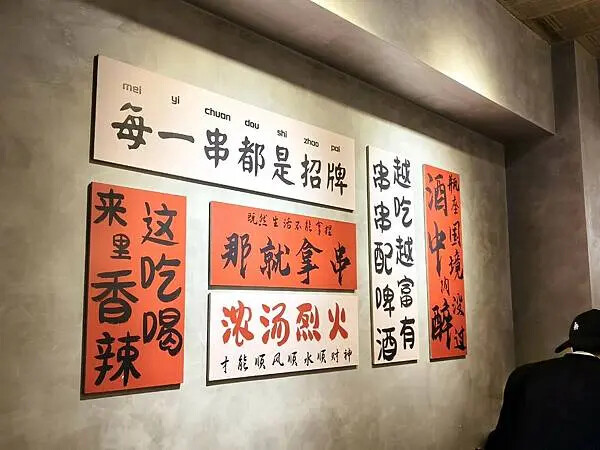 mei yi chuan dou shi zhao pai
每一串都是招牌
来这里吃香喝辣
既然生活不能拿捏
那就拿串
浓汤烈火
才能顺风顺水顺财神
越吃越富有
串串配啤酒
国境没过
酒中醉